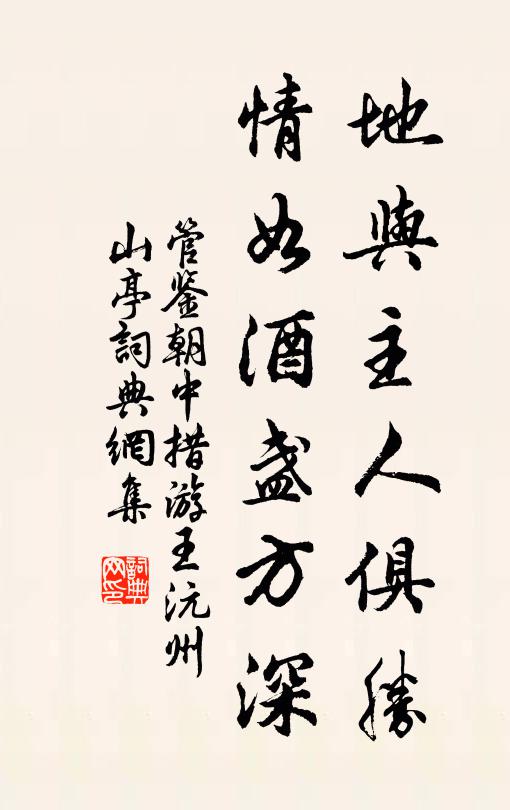 地與主人俱勝
情如酒盞方深
管鉴朝中措游王沅州
山亭詞典網集
詞典網印